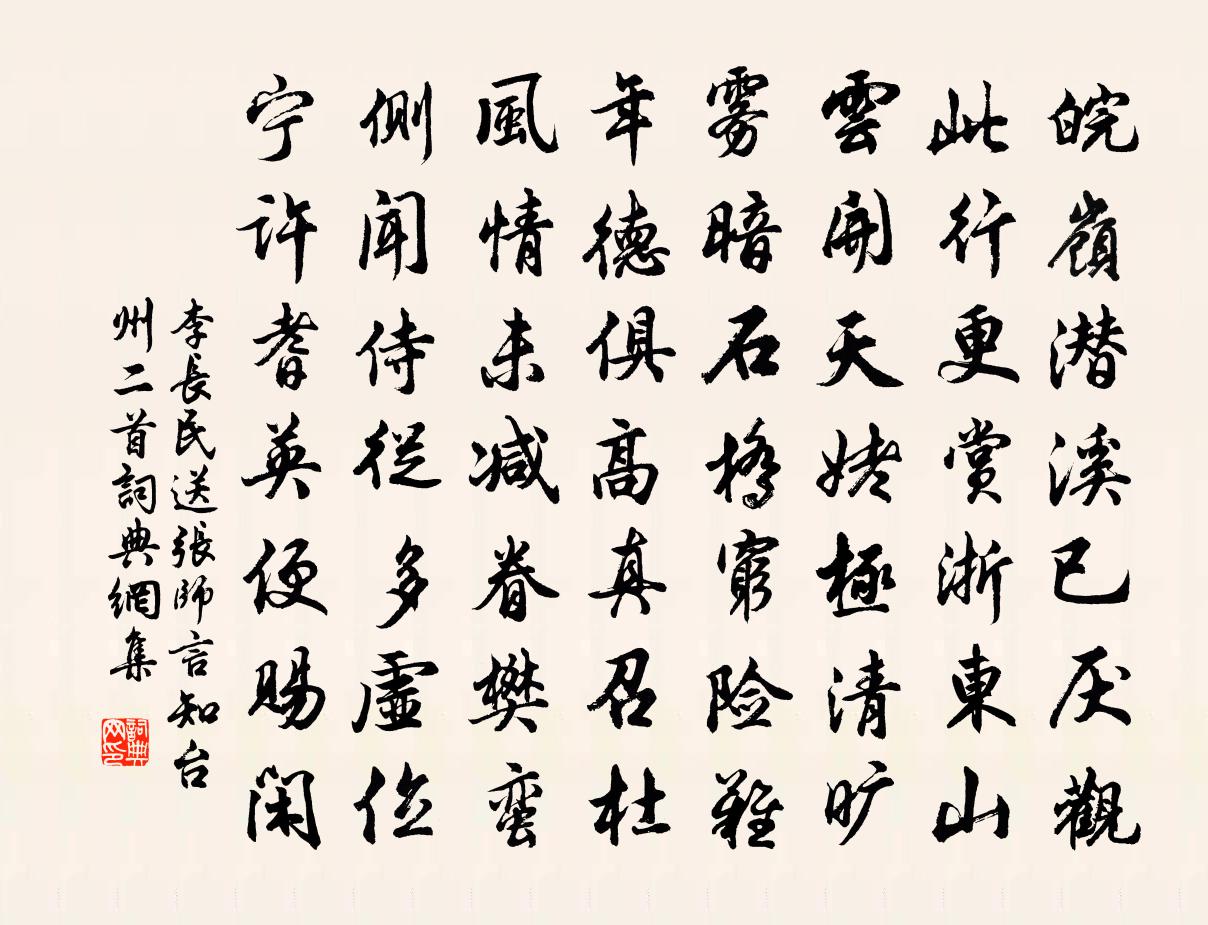 皖嶺潜溪已厌觀
此行更賞浙東山
雲開天姥極清旷
雾暗石橋窮险難
年德俱高真召杜
風情未减眷樊蛮
側聞侍從多虛位
宁許耆英便賜閑
李長民送張師言知台
州二首詞典網集
詞典網印